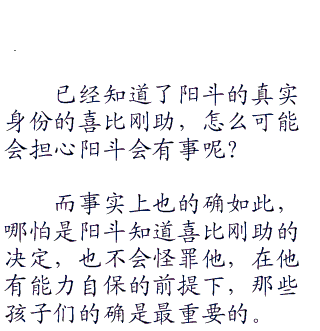 已经知道了阳斗的真实
身份的喜比刚助，怎么可能
会担心阳斗会有事呢？
而事实上也的确如此，
哪怕是阳斗知道喜比刚助的
决定，也不会怪罪他，在他
有能力自保的前提下，那些
孩子们的确是最重要的。